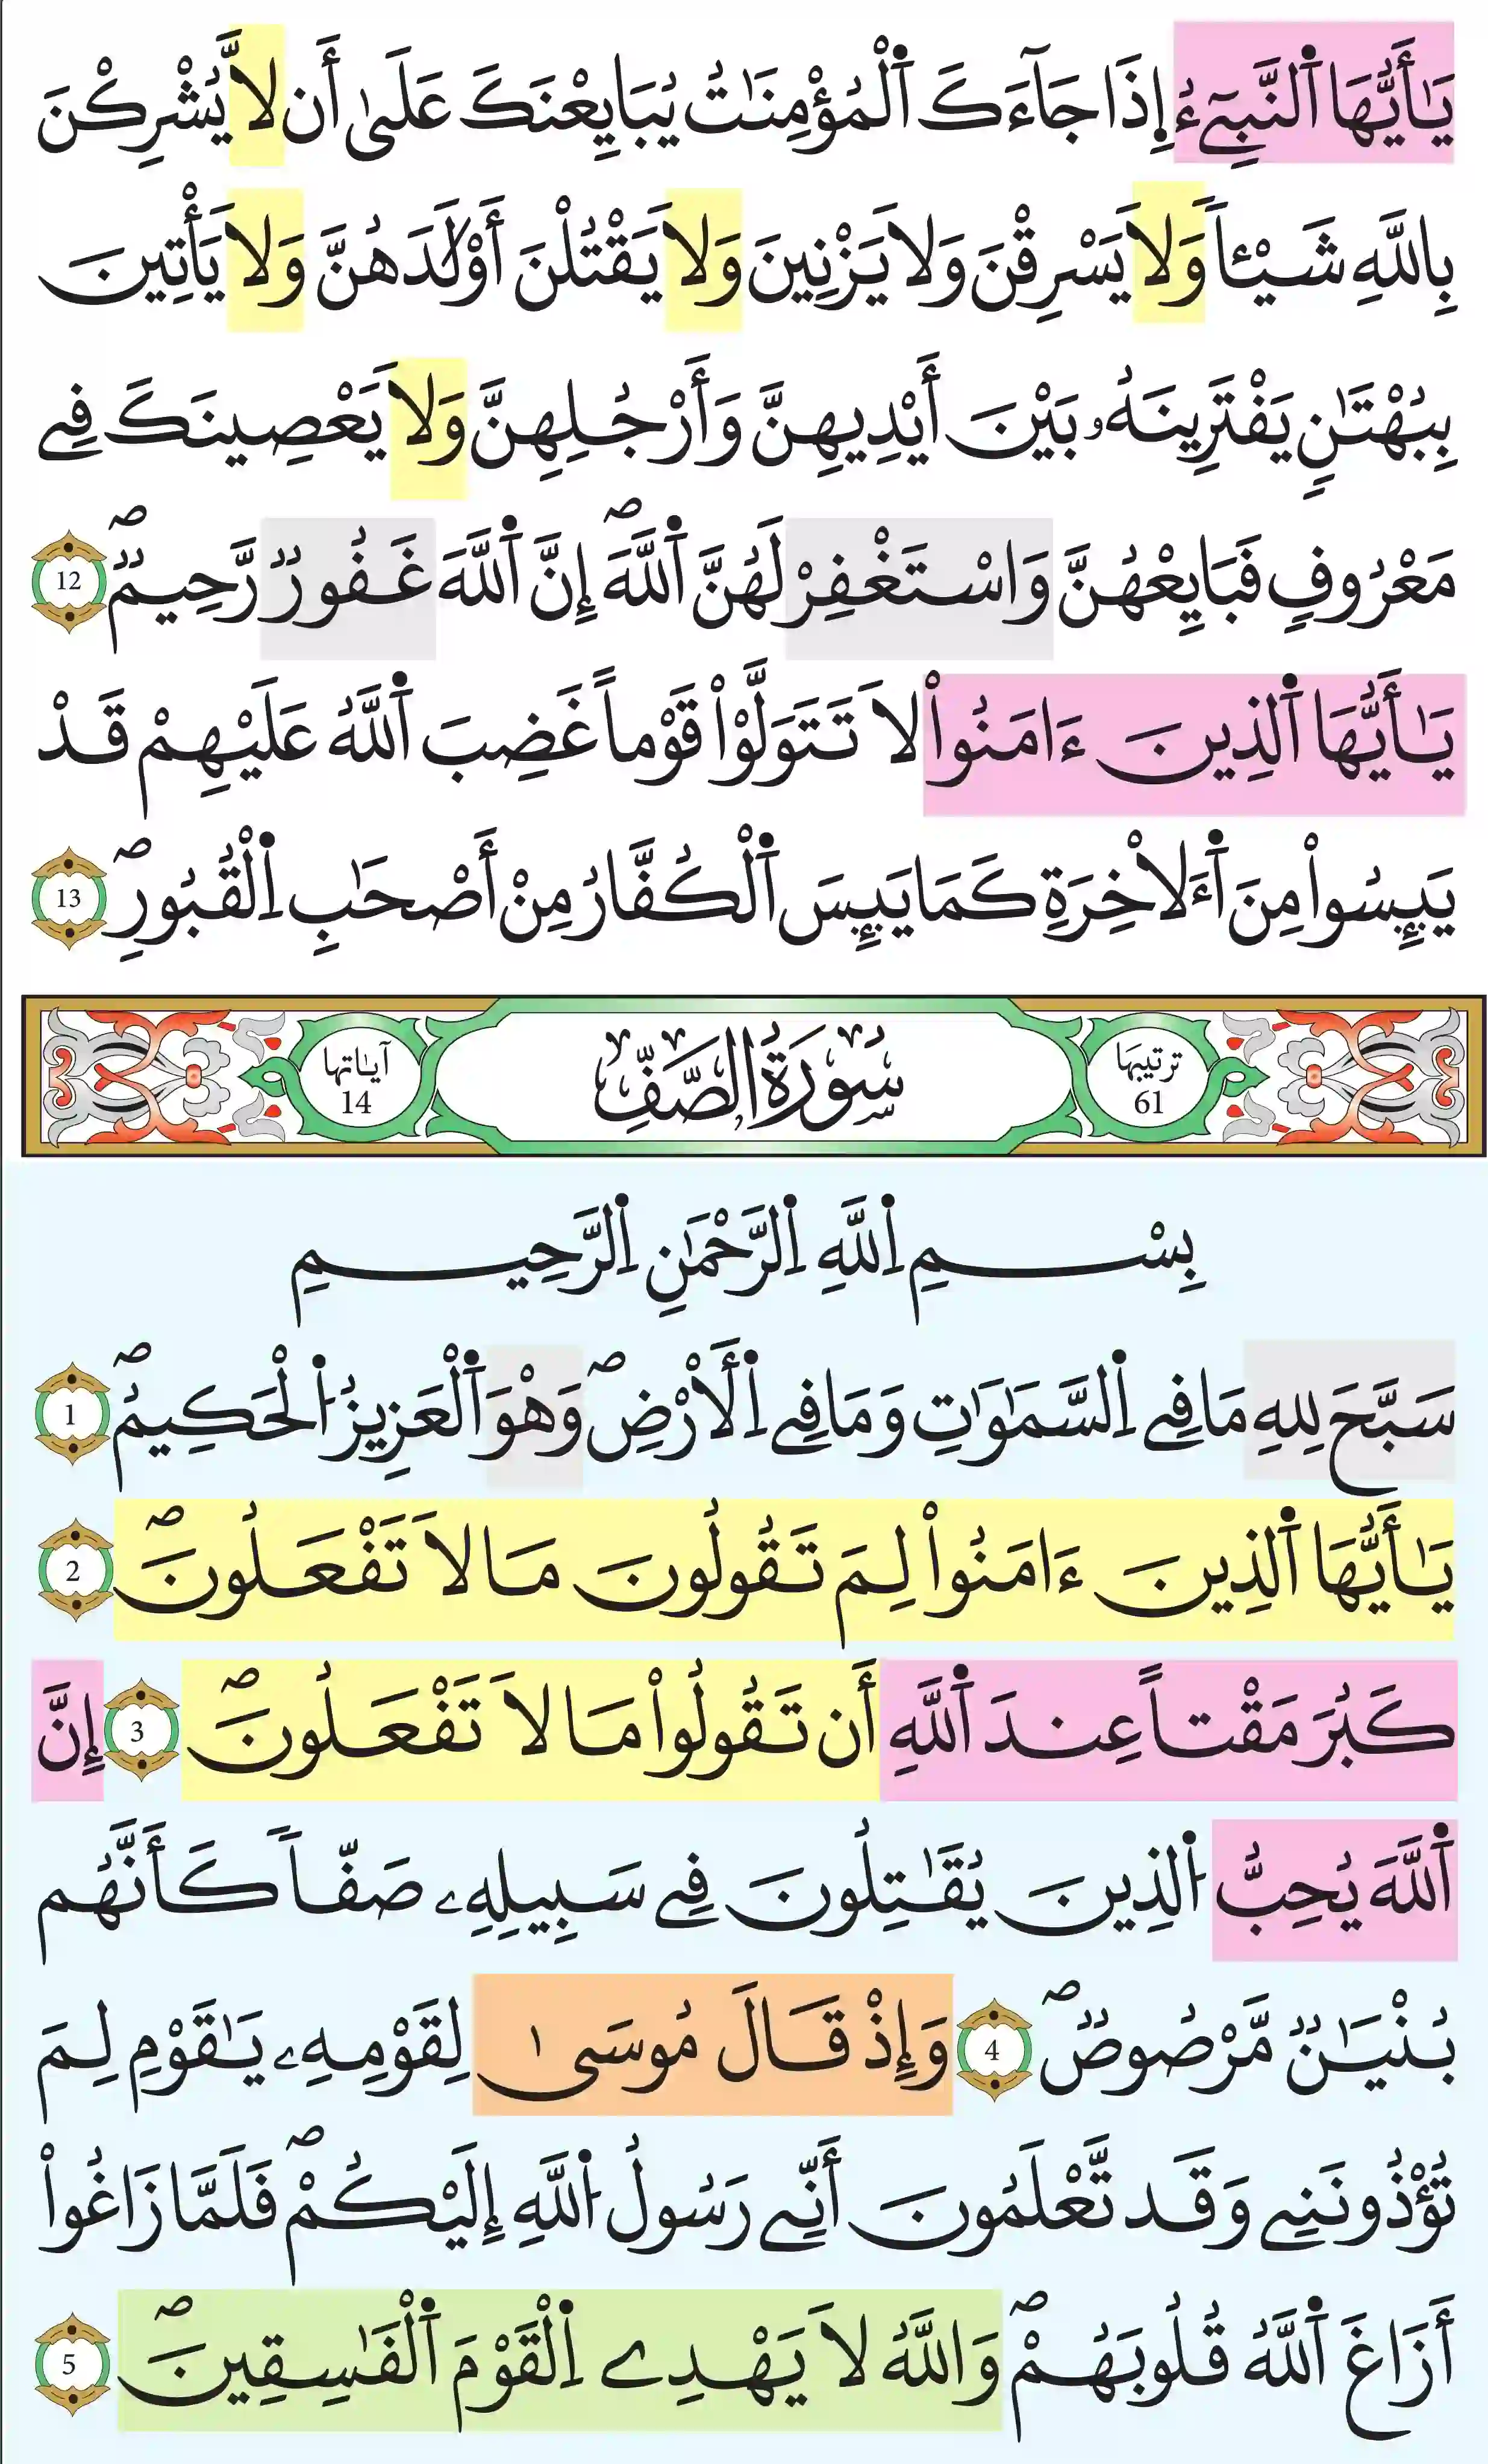 يَٰأَيُّهَا اَ۬لنَّبِےٓءُ اِ۪ذَا جَآءَكَ اَ۬لْمُؤْمِنَٰتُ يُبَايِعْنَكَ عَلَيٰٓ أَن لَّا يُشْرِكْنَ
بِاللَّهِ شَيْـٔاً وَلَا يَسْرِقْنَ وَلَا يَزْنِينَ وَلَا يَقْتُلْنَ أَوْلَٰدَهُنَّ وَلَا يَأْتِينَ
بِبُهْتَٰنٍ يَفْتَرِينَهُۥ بَيْنَ أَيْدِيهِنَّ وَأَرْجُلِهِنَّ وَلَا يَعْصِينَكَ فِے
مَعْرُوفٍ فَبَايِعْهُنَّ وَاسْتَغْفِرْ لَهُنَّ اَ۬للَّهَۖ إِنَّ اَ۬للَّهَ غَفُورٌ رَّحِيمٌۖ 12
يَٰأَيُّهَا اَ۬لذِينَ ءَامَنُواْ لَا تَتَوَلَّوْاْ قَوْماً غَضِبَ اَ۬للَّهُ عَلَيْهِمْ قَدْ
يَئِسُواْ مِنَ اَ۬لَأخِرَةِ كَمَا يَئِسَ اَ۬لْكُفَّارُ مِنْ أَصْحَٰبِ اِ۬لْقُبُورِۖ 13
ترتيبها 61 سُورَةُ الصَّفِّ آياتها 14
بِسْمِ اِ۬للَّهِ اِ۬لرَّحْمَٰنِ اِ۬لرَّحِيمِ
سَبَّحَ لِلهِ مَا فِے اِ۬لسَّمَٰوَٰتِ وَمَا فِے اِ۬لَارْضِۖ وَهْوَ اَ۬لْعَزِيزُ اُ۬لْحَكِيمُۖ 1
يَٰأَيُّهَا اَ۬لذِينَ ءَامَنُواْ لِمَ تَقُولُونَ مَا لَا تَفْعَلُونَۖ 2
كَبُرَ مَقْتاً عِندَ اَ۬للَّهِ أَن تَقُولُواْ مَا لَا تَفْعَلُونَۖ 3 إِنَّ
اَ۬للَّهَ يُحِبُّ اُ۬لذِينَ يُقَٰتِلُونَ فِے سَبِيلِهِۦ صَفّاً كَأَنَّهُم
بُنْيَٰنٌ مَّرْصُوصٌۖ 4 وَإِذْ قَالَ مُوسَىٰ لِقَوْمِهِۦ يَٰقَوْمِ لِمَ
تُؤْذُونَنِے وَقَد تَّعْلَمُونَ أَنِّے رَسُولُ اُ۬للَّهِ إِلَيْكُمْۖ فَلَمَّا زَاغُواْ
أَزَاغَ اَ۬للَّهُ قُلُوبَهُمْۖ وَاللَّهُ لَا يَهْدِے اِ۬لْقَوْمَ اَ۬لْفَٰسِقِينَۖ 5